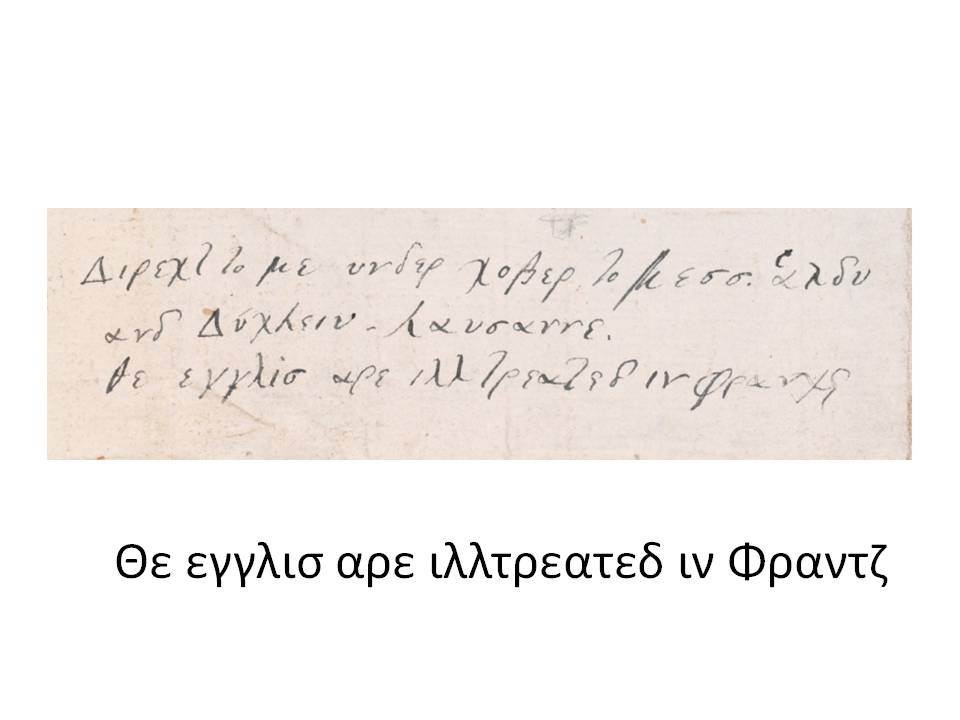 Διρεχτ το με υνδερ χοβερ το Μεσσ. ἁλδυ
ανδ Δυχλειυ - λαυσαννε.
θε εγγλισ αρε ιλλ τρεατεδ ιν φρανχε
Θε εγγλισ αρε ιλλτρεατεδ ιν Φραντζ